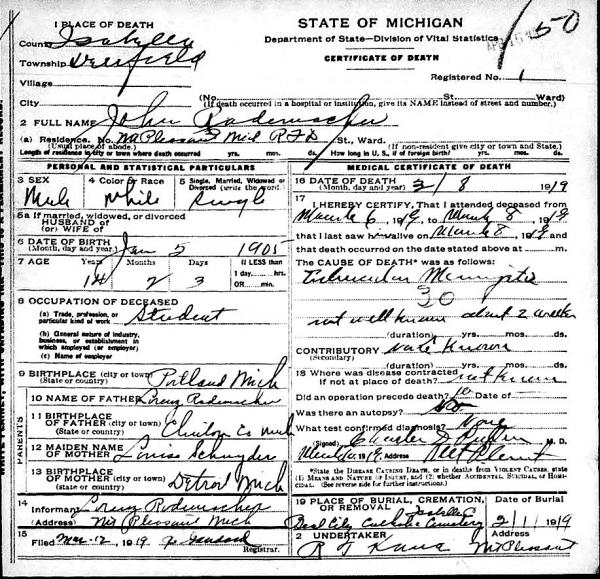 1 PLACE OF DEATH
County Isabella
Township Deerfield
Village
City
STATE OF MICHIGAN
Department of State—Division of Vital Statistics
CERTIFICATE OF DEATH
150
Registered No. 1
(No. St., Ward)
(If death occurred in a hospital or institution, give its NAME instead of street and number.)
2 FULL NAME John Rademacher
(a) Residence. No. Mt Pleasant Mich R F D St., Ward.
(Usual place of abode.) (If non-resident give city or town and State.)
Length of residence in city or town where death occurred yrs. mos. ds. How long in U. S., if of foreign birth? yrs. mos. ds.
PERSONAL AND STATISTICAL PARTICULARS
3 SEX Male
4 Color or Race White
5 Single, Married, Widowed or Divorced (write the word.) Single
5a If married, widowed, or divorced
HUSBAND of
(or) WIFE of
6 DATE OF BIRTH
(Month, day and year.) Jan 5 1905
7 AGE Years Months Days If LESS than
14 2 3 1 day......hrs.
OR......min.
8 OCCUPATION OF DECEASED
(a) Trade, profession, or
particular kind of work Student
(b) General nature of industry,
business, or establishment in
which employed (or employer)
(c) Name of employer
9 BIRTHPLACE (city or town) Portland Mich
(State or country)
PARENTS
10 NAME OF FATHER Lorenz Rademacher
11 BIRTHPLACE
OF FATHER (city or town) Clinton Co Mich
(State or country)
12 MAIDEN NAME
OF MOTHER Louisa
13 BIRTHPLACE
OF MOTHER (city or town) Detroit Mich
(State or country)
14
Informant Lorenz Rademacher
(Address) Mt Pleasant Mich
15
Filed Mar 12, 1919
Registrar.
MEDICAL CERTIFICATE OF DEATH
16 DATE OF DEATH
(Month, day and year) 3 / 8 1919
17
I HEREBY CERTIFY, That I attended deceased from
March 6, 1919, to March 8, 1919
that I last saw him alive on March 8, 1919 and
that death occurred on the date stated above at m.
The CAUSE OF DEATH* was as follows:
Tubercular Meningitis
30
not well known about 2 weeks
(duration) yrs. mos. ds.
CONTRIBUTORY not known
(Secondary)
(duration) yrs. mos. ds.
18 Where was disease contracted
if not at place of death? not known
Did an operation precede death? no
Was there an autopsy? no
What test confirmed diagnosis? None
(Signed) M. D.
March 10, 1919 (Address) Mt Pleasant
*State the DISEASE CAUSING DEATH, or in deaths from VIOLENT CAUSES, state
(1) MEANS AND NATURE OF INJURY, and (2) whether ACCIDENTAL, SUICIDAL, or HOMI-
CIDAL. (See reverse side for further instructions.)
19 PLACE OF BURIAL, CREMATION, Date of Burial
OR REMOVAL Isabella Co
Beal City Catholic Cemetery 3/11 1919
2 UNDERTAKER Address
Mt Pleasant